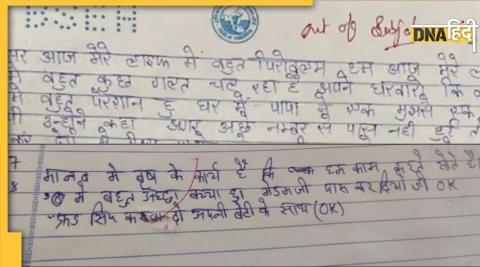 BSEH
out of Subject
DNA हिंदी
सर आज मेरे लाइफ में बहुत पिरोबलम हम आज मेरे ल
में बहुत कुछ गलत चल रहा है अपने घरवारे कि व
में बहुत परेशान हु घर में - पापा है एक मुझसे एक
उन्होंने कहा अगर अछे नम्बर से पास नही हुई तो
7 मानव मे वृष के कार्य है कि हम काम करते होते है
8 मे बहुत अच्छा बच्चा हु मेडमजी पास कर दियो जी OK
फ्रेंड सिप करवा दो अपनी बेटी के साथ (OK)